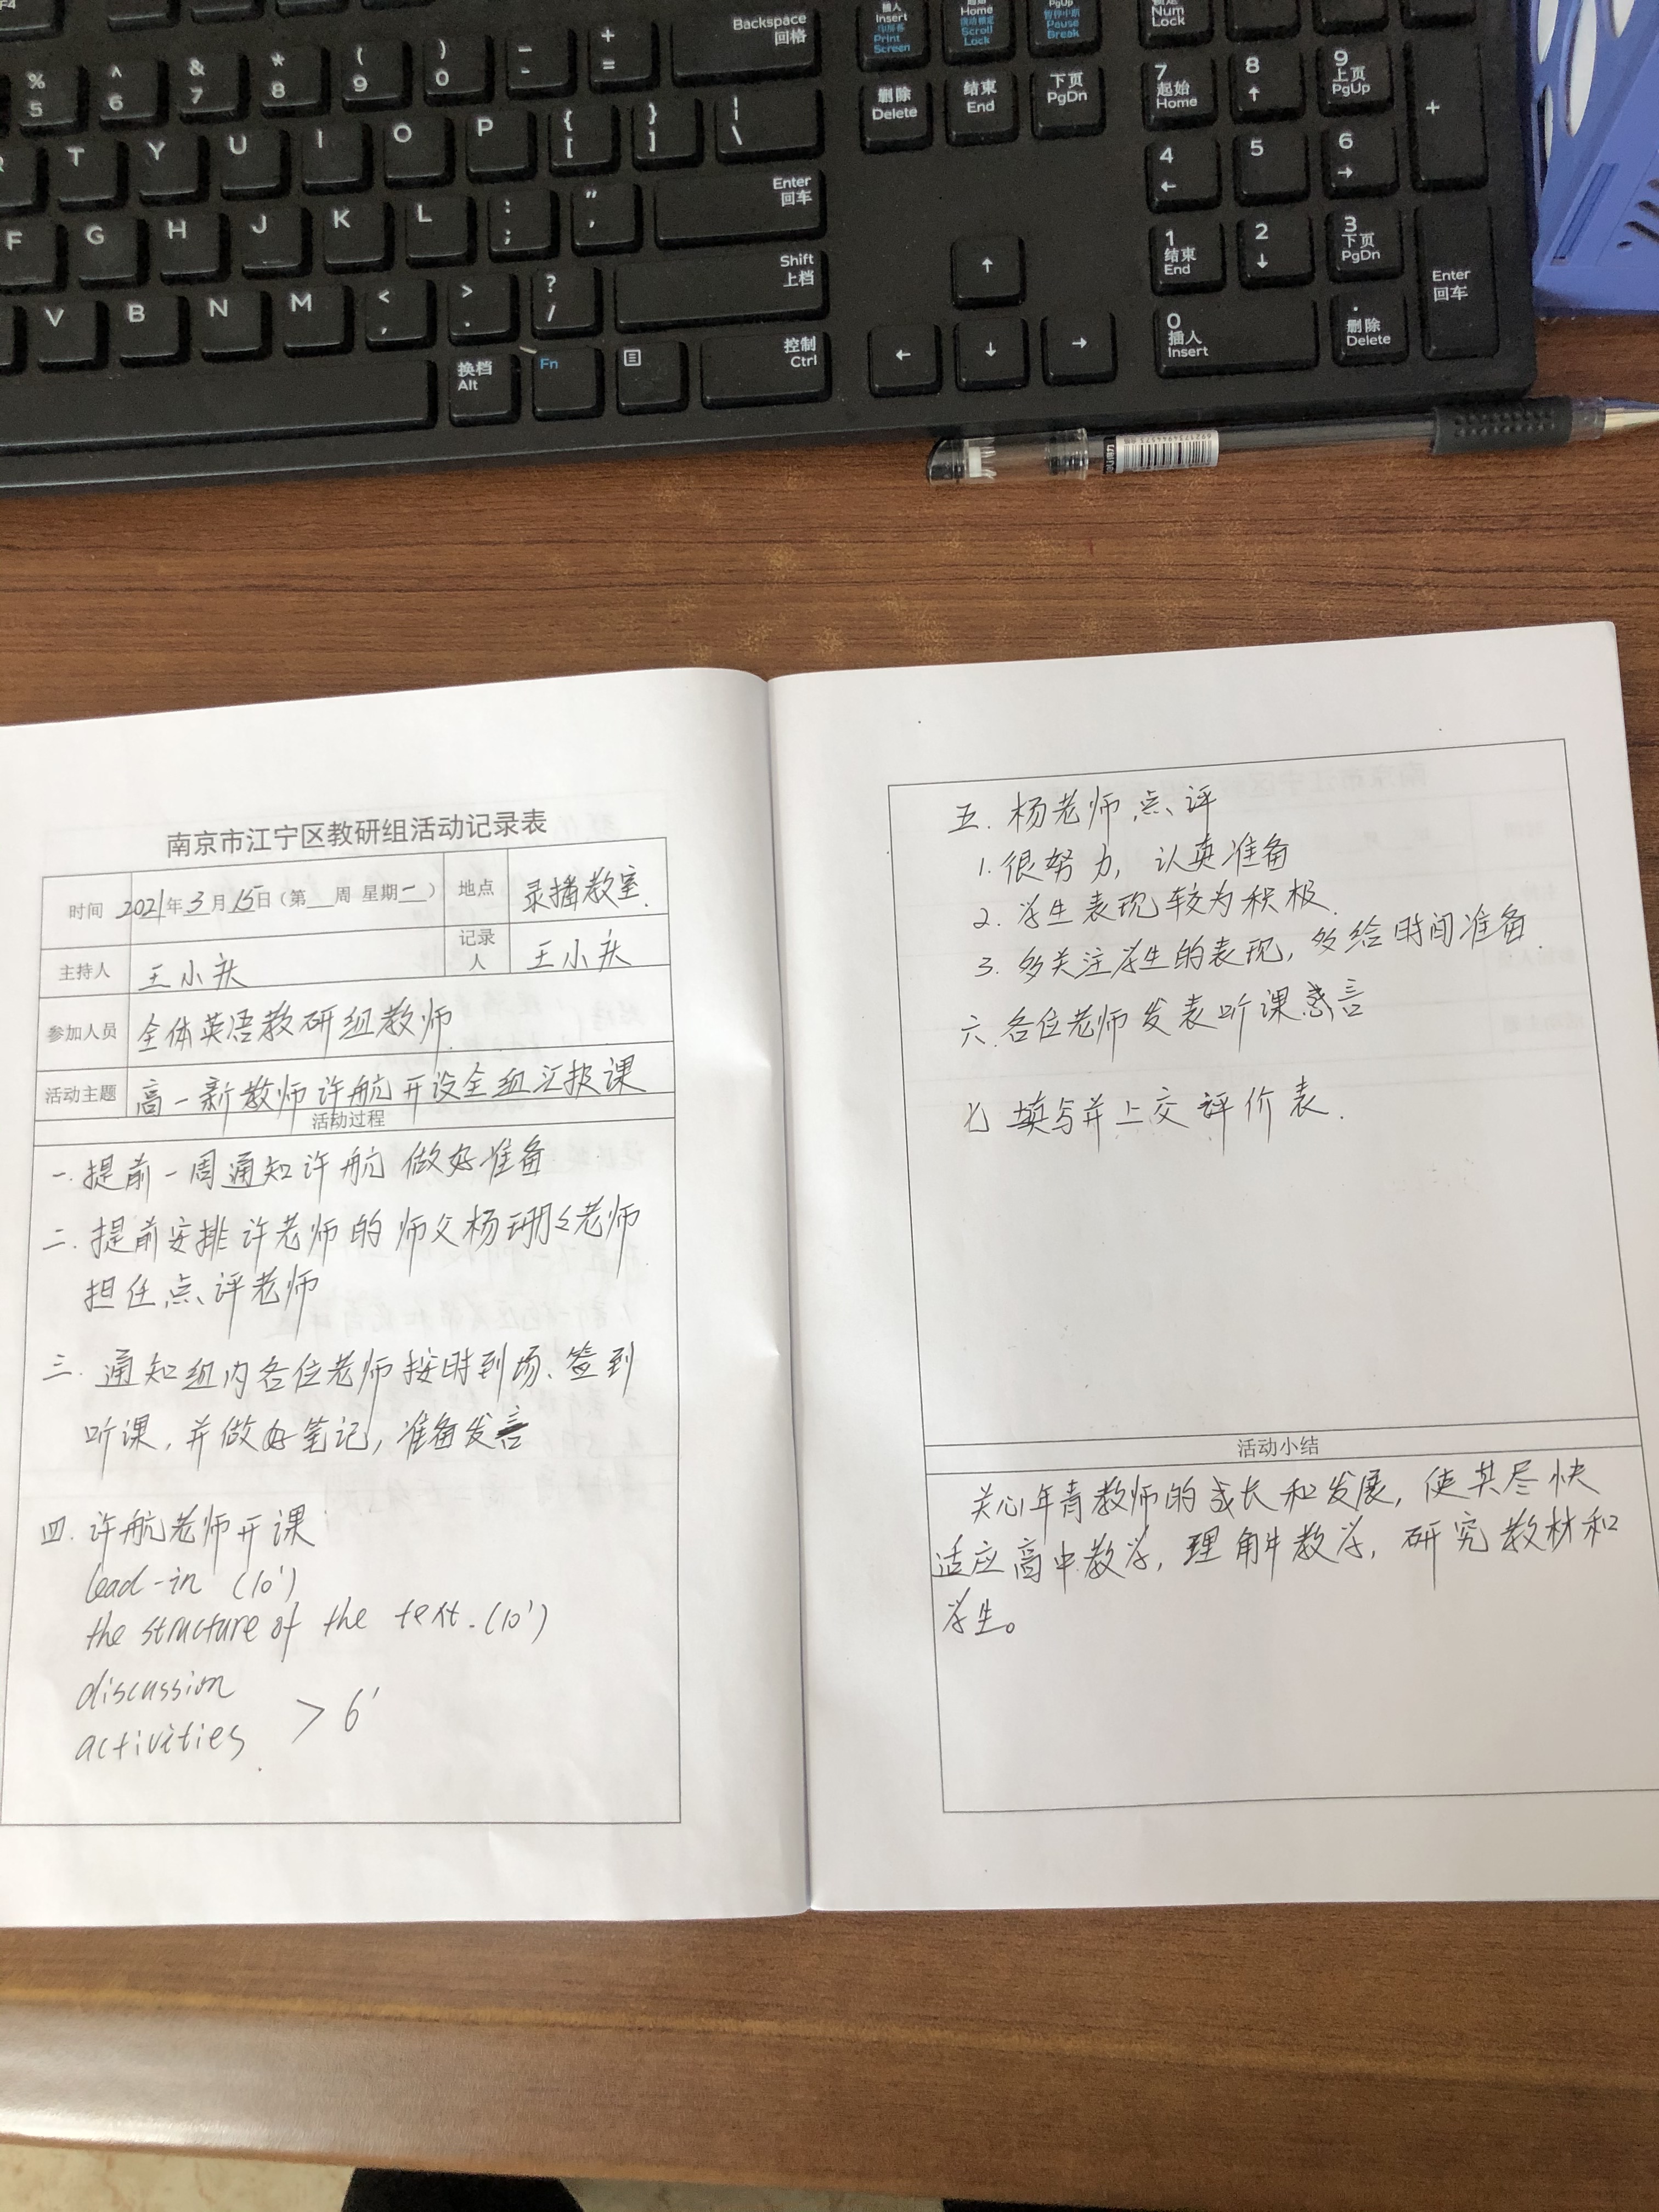 F4
% 5
^ 6
& 7
* 8
( 9
) 0
_ -
+ =
Backspace 回格
插入 Insert 印屏幕 Print Screen
Home Scroll Lock
PgUp 暂停中断 Pause Break
Num Lock
R T Y U I O P { [ } ] | \
删除 Delete
结束 End
下页 PgDn
7 起始 Home
8 ↑
9 上页 PgUp
+
F G H J K L : ; " ' Enter 回车
4 ←
5
6 →
V B N M < , > . ? / Shift 上档
↑
1 结束 End
2 ↓
3 下页 PgDn
Enter 回车
换档 Alt
Fn
控制 Ctrl
← ↓ →
0 插入 Insert
. 删除 Delete
南京市江宁区教研组活动记录表
时间 2021年3月15日(第 周 星期一) 地点 录播教室.
主持人 王小庆 记录人 王小庆
参加人员 全体英语教研组教师.
活动主题 高一新教师许航开设全组汇报课
活动过程
一.提前一周通知许航 做好准备
二.提前安排许老师的师父杨珊々老师
担任点评老师
三.通知组内各位老师按时到场、签到
听课,并做好笔记,准备发言
四.许航老师开课
lead-in (10')
the structure of the text.(10')
discussion
activities > 6'
五.杨老师点评
1.很努力,认真准备
2.学生表现较为积极.
3.多关注学生的表现,多给时间准备.
六.各位老师发表听课感言
七 填写并上交评价表.
活动小结
关心年青教师的成长和发展,使其尽快
适应高中教学,理解教学,研究教材和
学生。